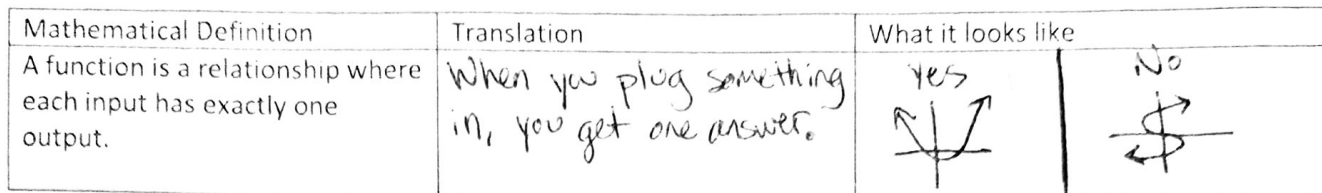 Mathematical Definition
Translation
What it looks like
A function is a relationship where
each input has exactly one
output.
When you plug something
in, you get one answer.
Yes
No